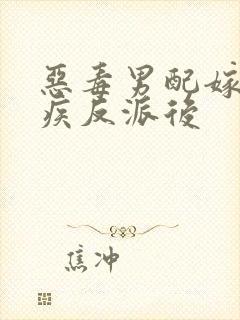 惡毒男配嫁
疾反派後
焦冲